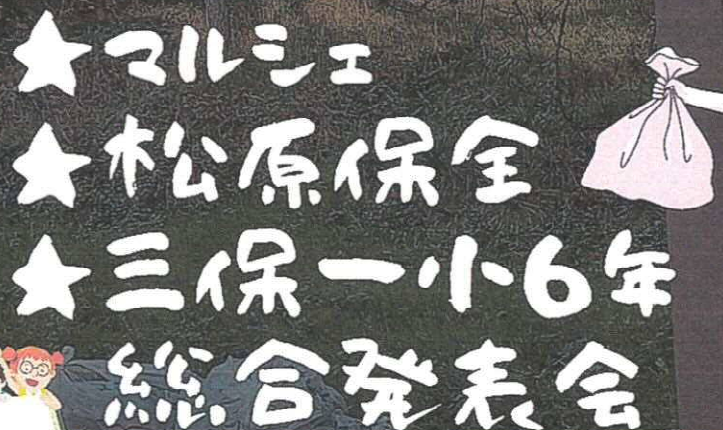 ★マルシェ
★松原保全
★三保一小6年
総合発表会